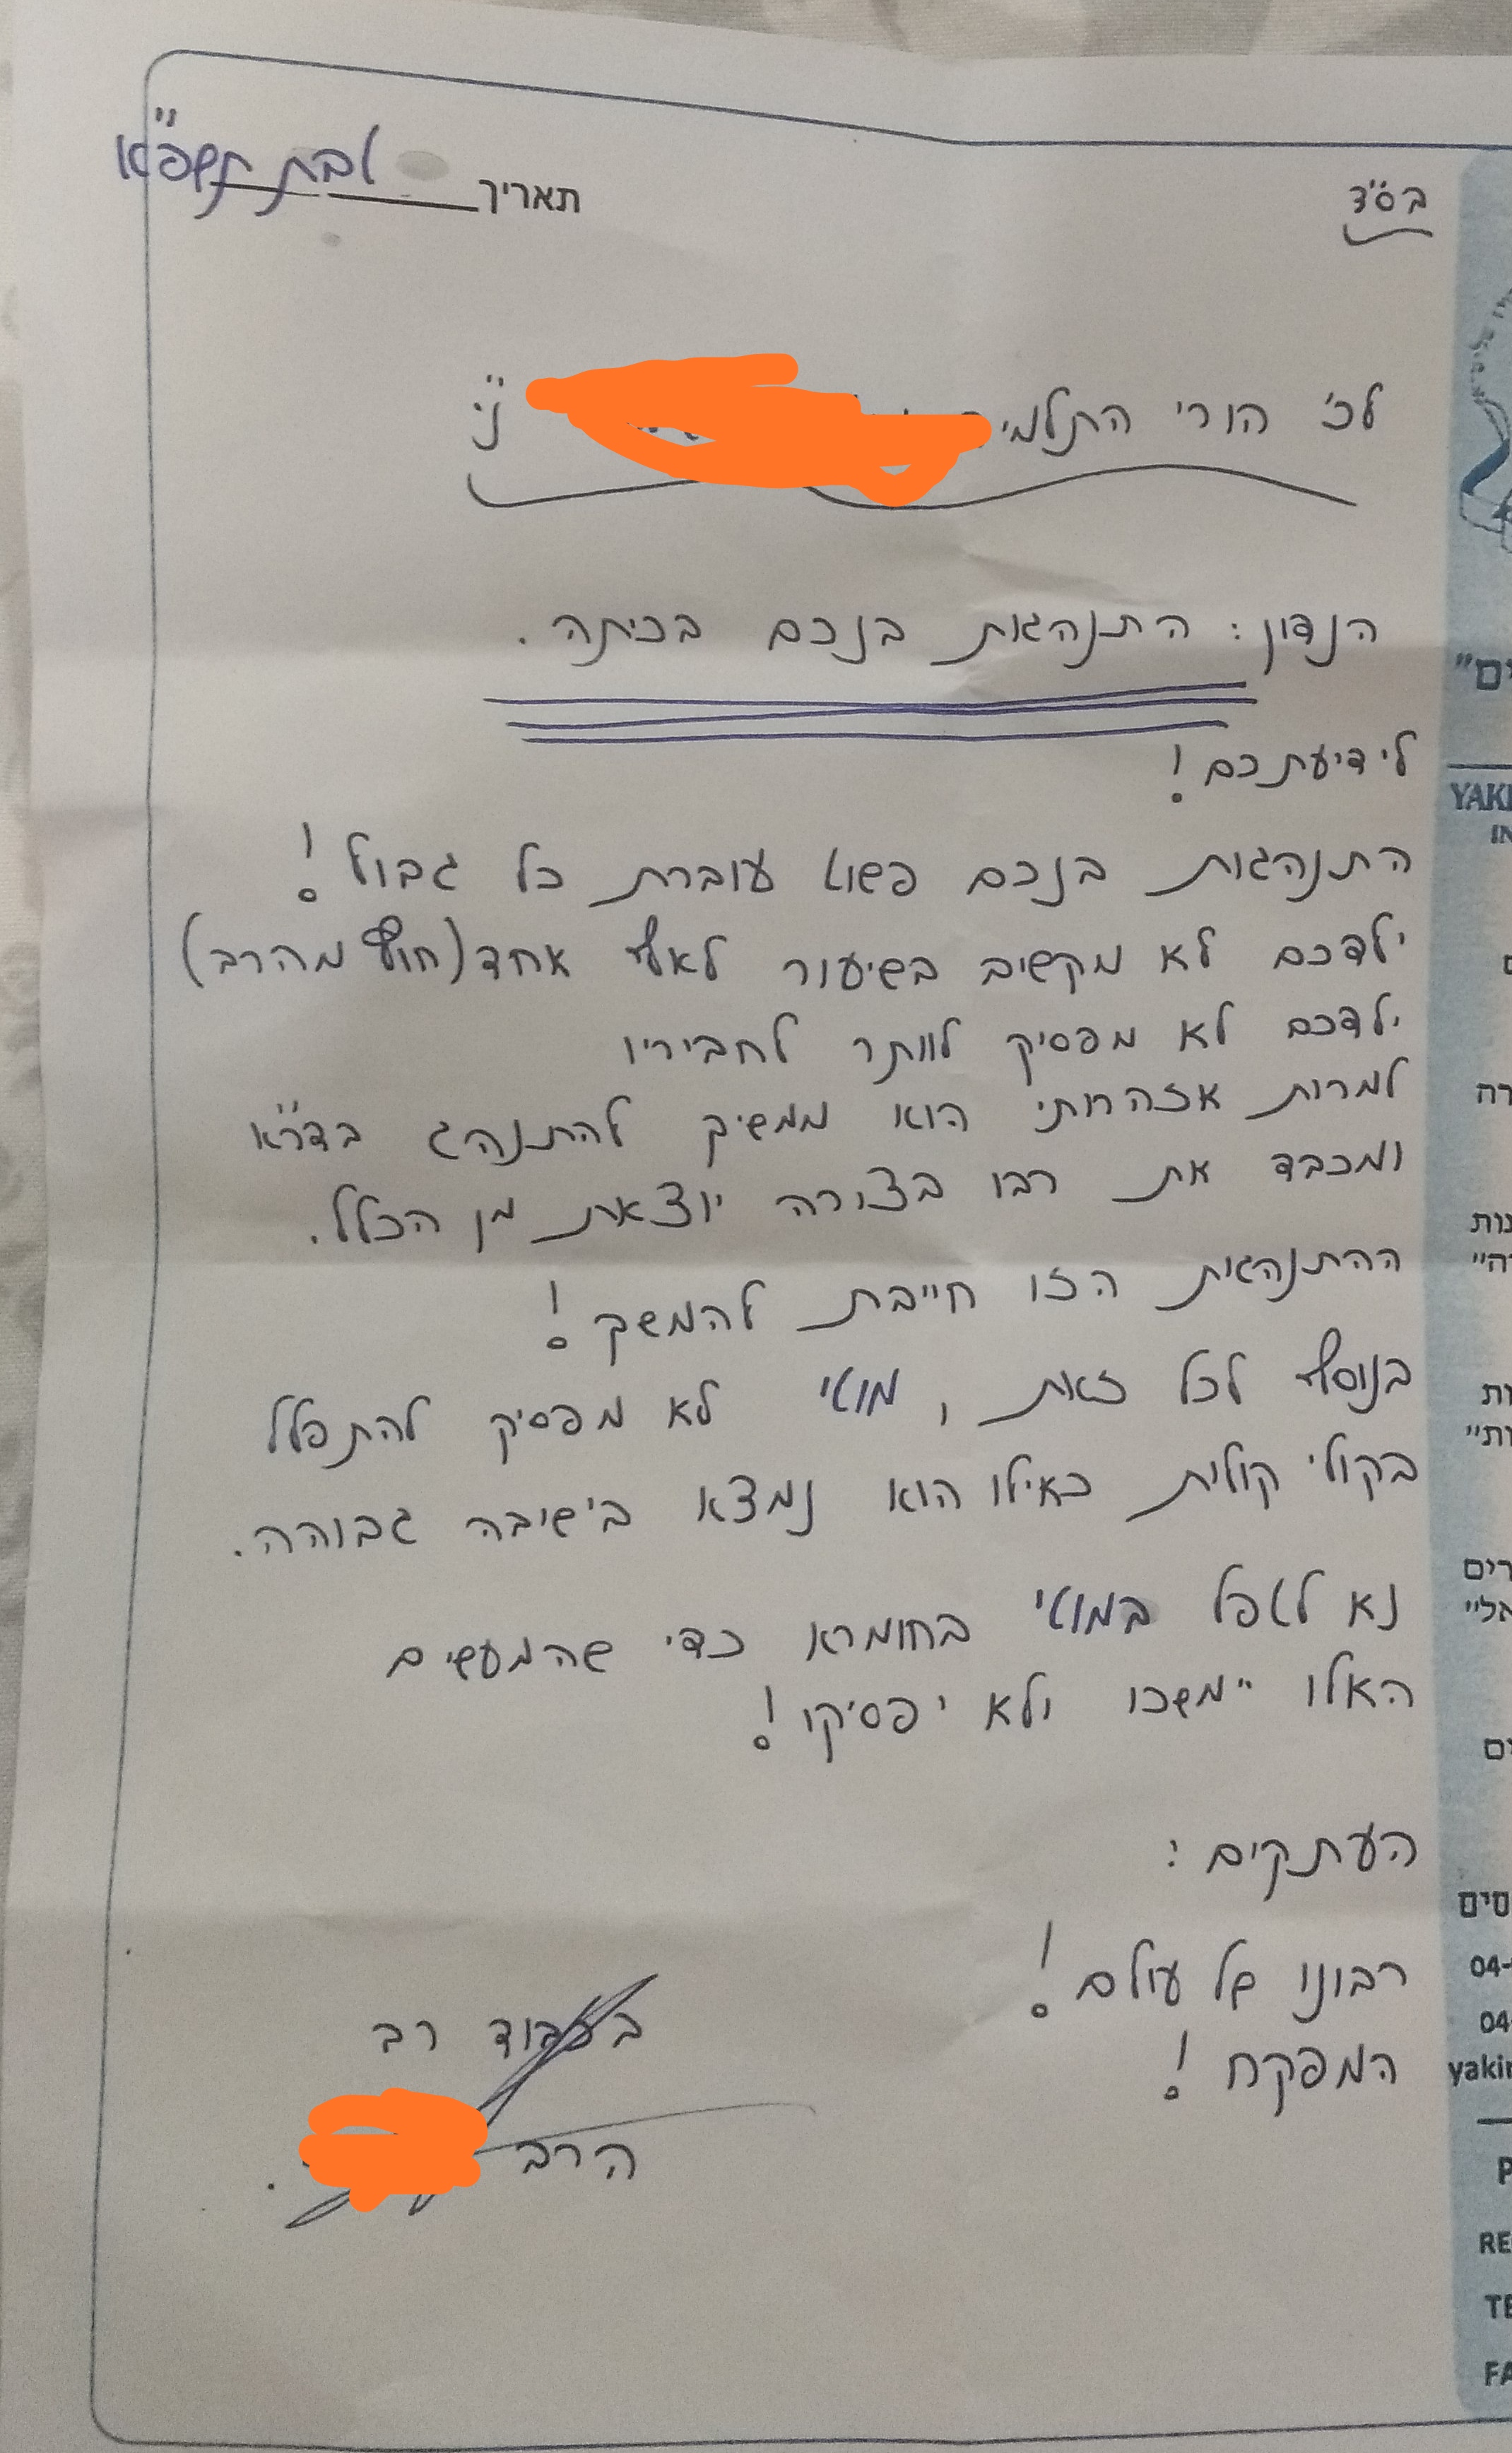 בס"ד
תאריך טבת תשפ"א
לכ' הורי התלמיד
ני"
הנדון: התנהגות בנכם בכיתה.
לידיעתכם!
התנהגות בנכם פשוט עוברת כל גבול!
ילדכם לא מקשיב בשיעור לאף אחד (חוץ מהרב)
ילדכם לא מפסיק לוותר לחביריו
למרות אזהרותי הוא ממשיך להתנהג בדר"א
ומכבד את רבו בצורה יוצאת מן הכלל.
ההתנהגות הזו חייבת להמשך!
בנוסף לכל זאת, מוטי לא מפסיק להתפלל
בקולי קולות כאילו הוא נמצא בישיבה גבוהה.
נא לטפל במוטי בחומרא כדי שהמעשים
האלו ימשכו ולא יפסיקו!
העתקים:
רבונו של עולם!
המפקח!
בכבוד רב
הרב
ים"
YAKI
IN
רה
ות
ות"
רים
אל"
ים
סים
04-
04
yakir
P
RE
TE
FA